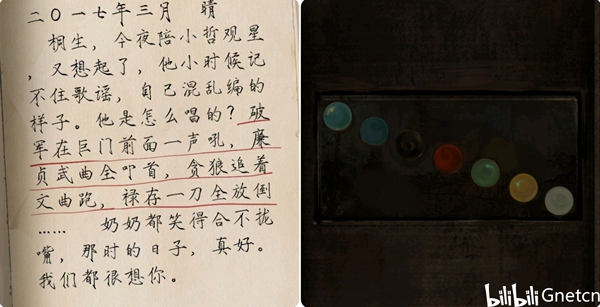 二〇一七年三月 晴
桐生，今夜陪小哲观星
，又想起了，他小时候记
不住歌谣，自己混乱编的
样子。他是怎么唱的？破
军在巨门前面一声吼，廉
贞武曲全叩首，贪狼追着
文曲跑，禄存一刀全放倒
…… 奶奶都笑得合不拢
嘴，那时的日子，真好。
我们都很想你。
bilibili Gnetcn